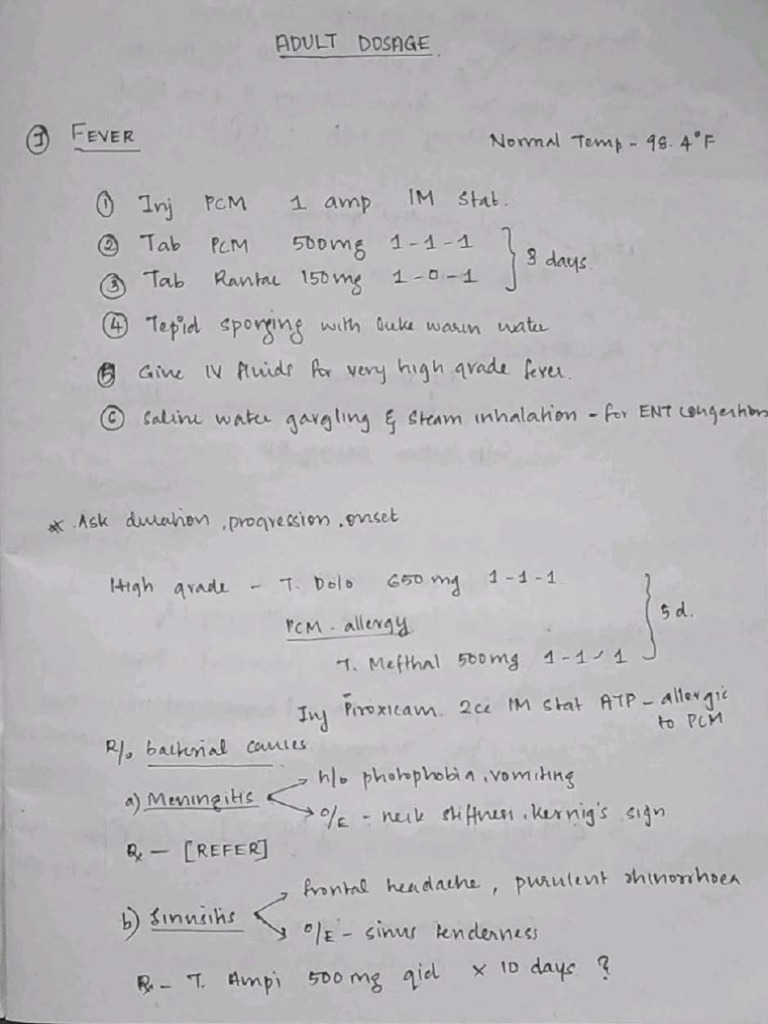 ADULT DOSAGE
① FEVER
Normal Temp - 98.4°F
① Inj PCM 1 amp IM stat.
② Tab PCM 500mg 1-1-1
③ Tab Rantac 150mg 1-0-1
} 3 days.
④ Tepid sponging with luke warm water
⑤ Give IV fluids for very high grade fever.
⑥ Saline water gargling & steam inhalation - for ENT congestion
* Ask duration, progression, onset
High grade - T. Dolo 650mg 1-1-1
PCM - allergy
} 5 d.
T. Mefthal 500mg 1-1-1
Inj Piroxicam 2cc IM stat ATP - allergic
to PCM
R/o bacterial causes
a) Meningitis
h/o photophobia, vomiting
O/E - neck stiffness, kernig's sign
Rx - [REFER]
b) Sinusitis
frontal headache, purulent rhinorrhoea
O/E - sinus tenderness
Rx - T. Ampi 500mg qid x 10 days ?